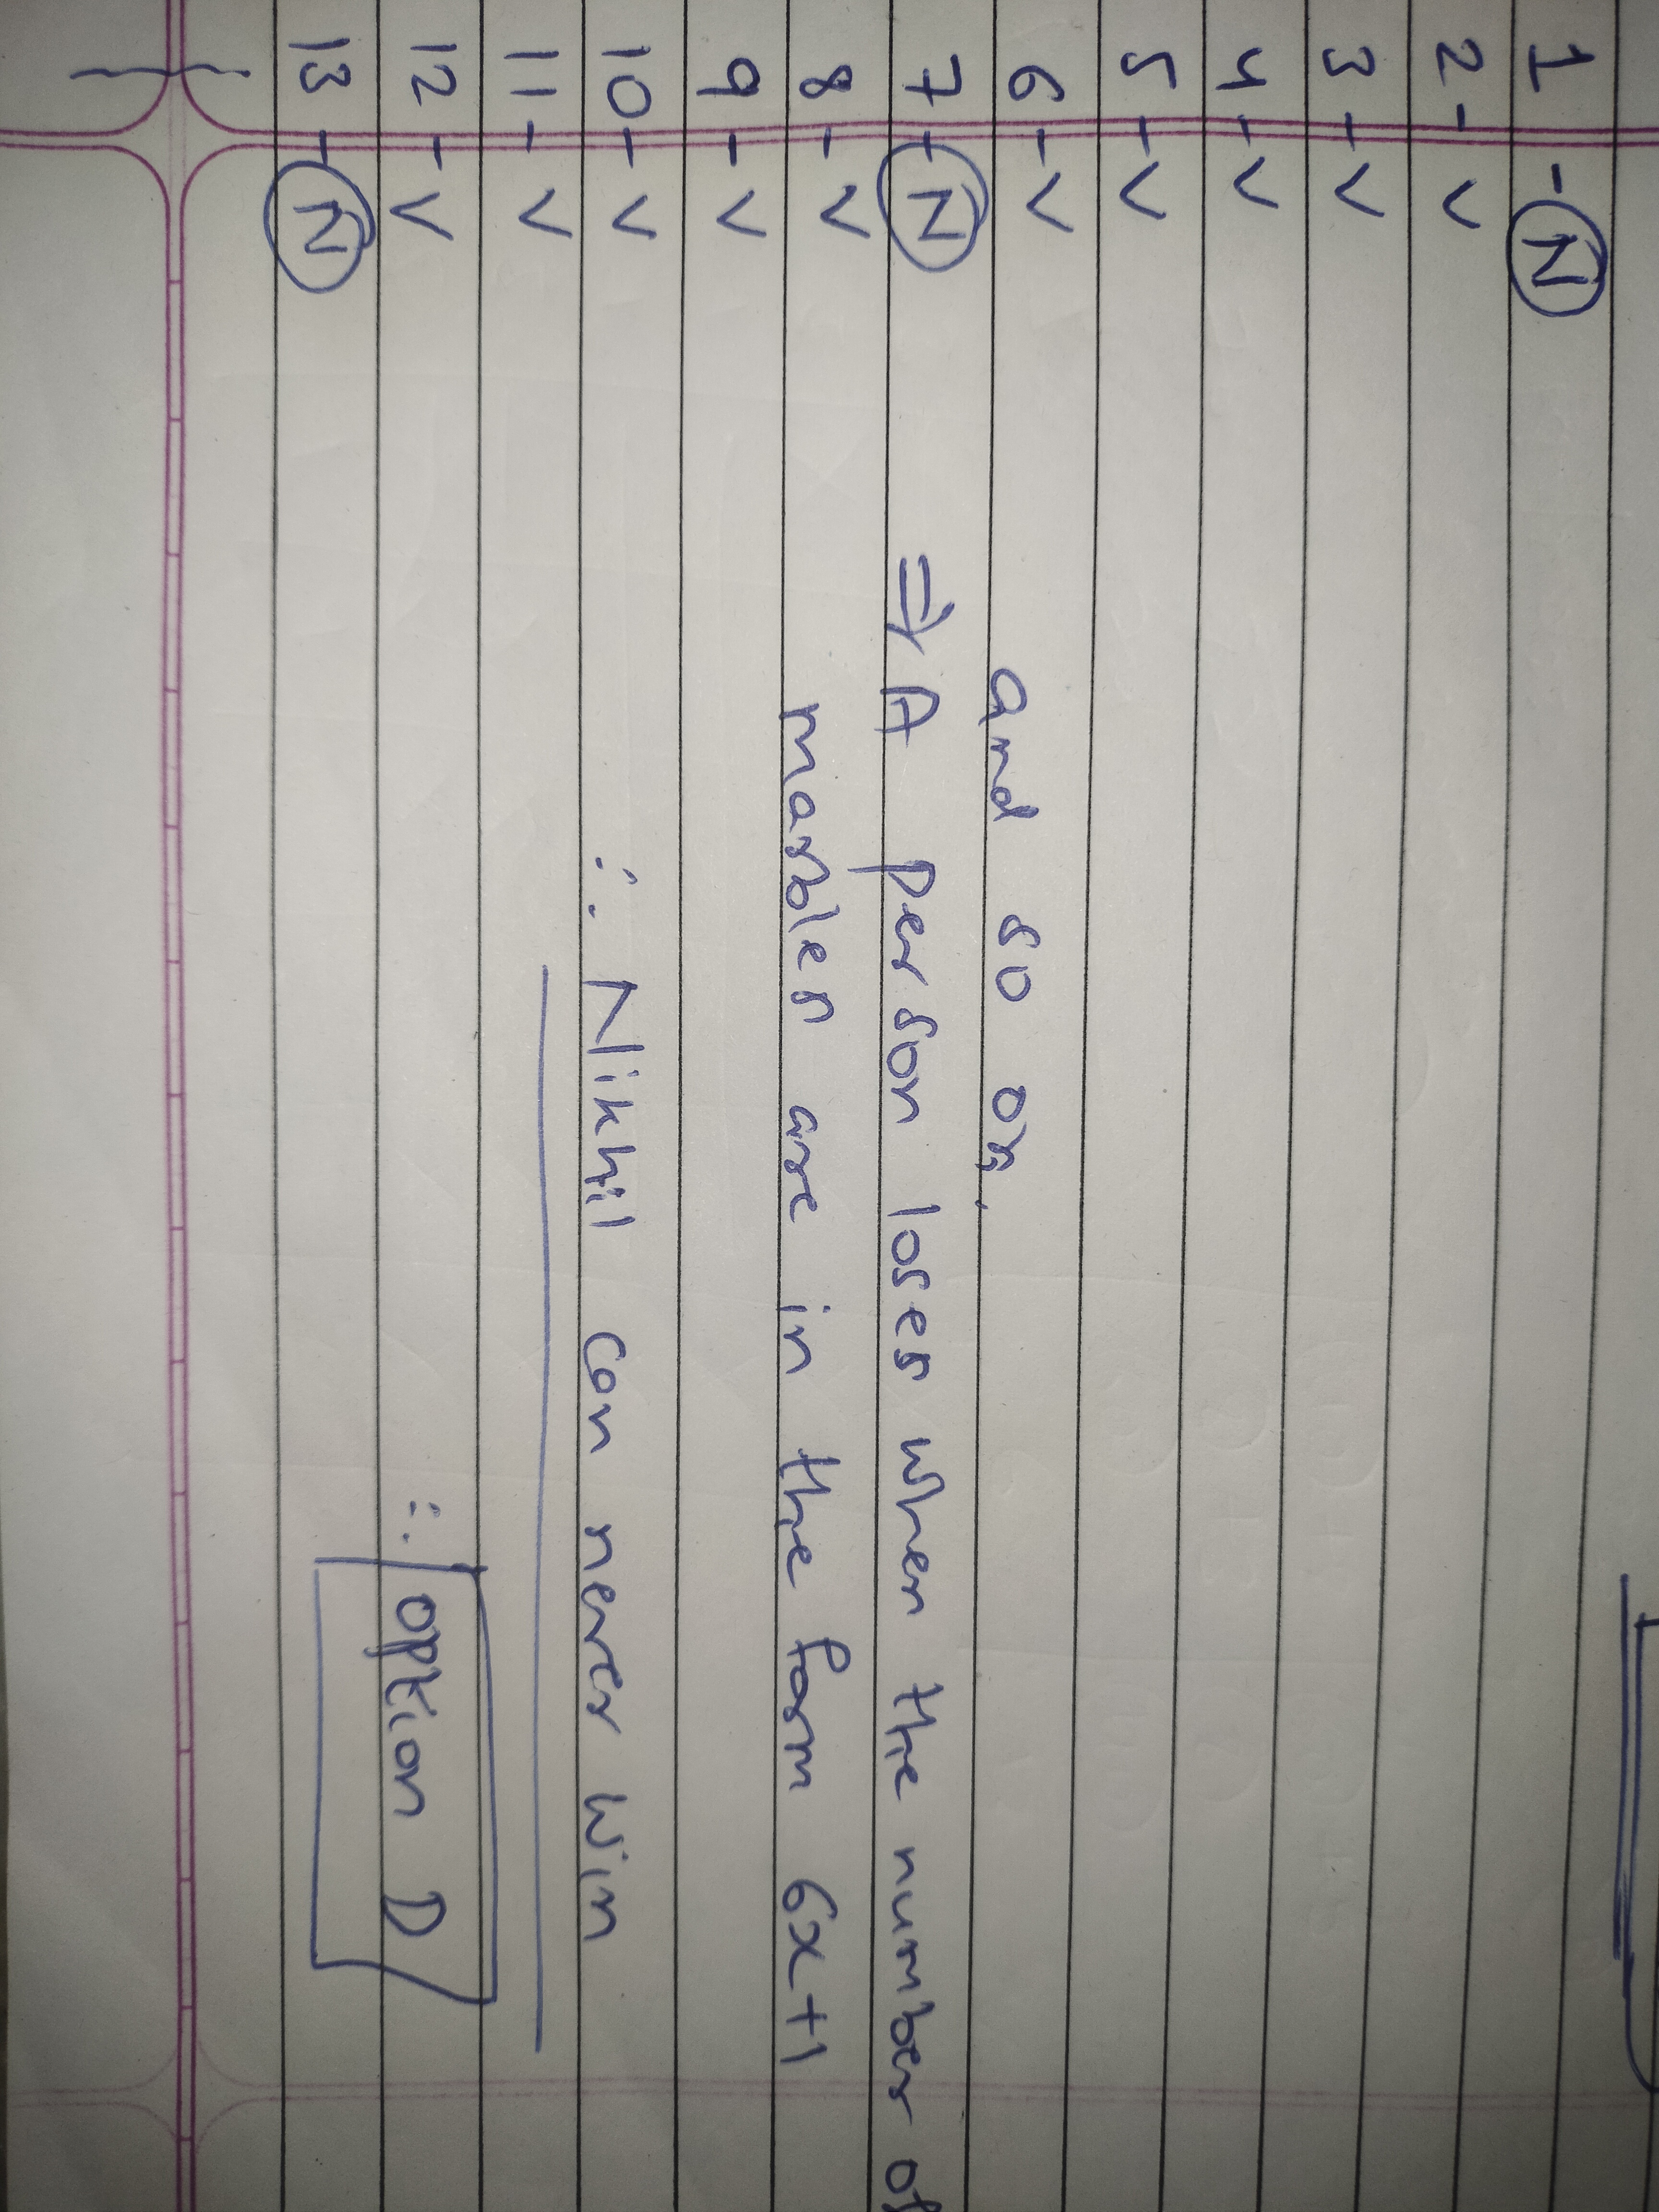 1 - N
2 - V
3 - V
4 - V
5 - V
6 - V
and so on.
7 - N
⇒ A person loses when the number of
8 - V
marbles are in the form 6x+1
9 - V
10 - V
∴ Nikhil can never win
11 - V
12 - V
∴ option D
13 - N